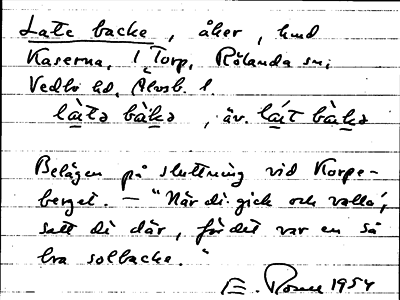 Late backe, åker, hmd
Kaserna, 1 Torp, Rölanda sn,
Vedbo hd, Älvsb. l.
là̱tə bàkə, äv. lá̱t bàkə
Belägen på sluttning vid Korpe-
berget. — "När di gick och valla',
satt di där, för det var en så
bra solbacke."
E. 1954